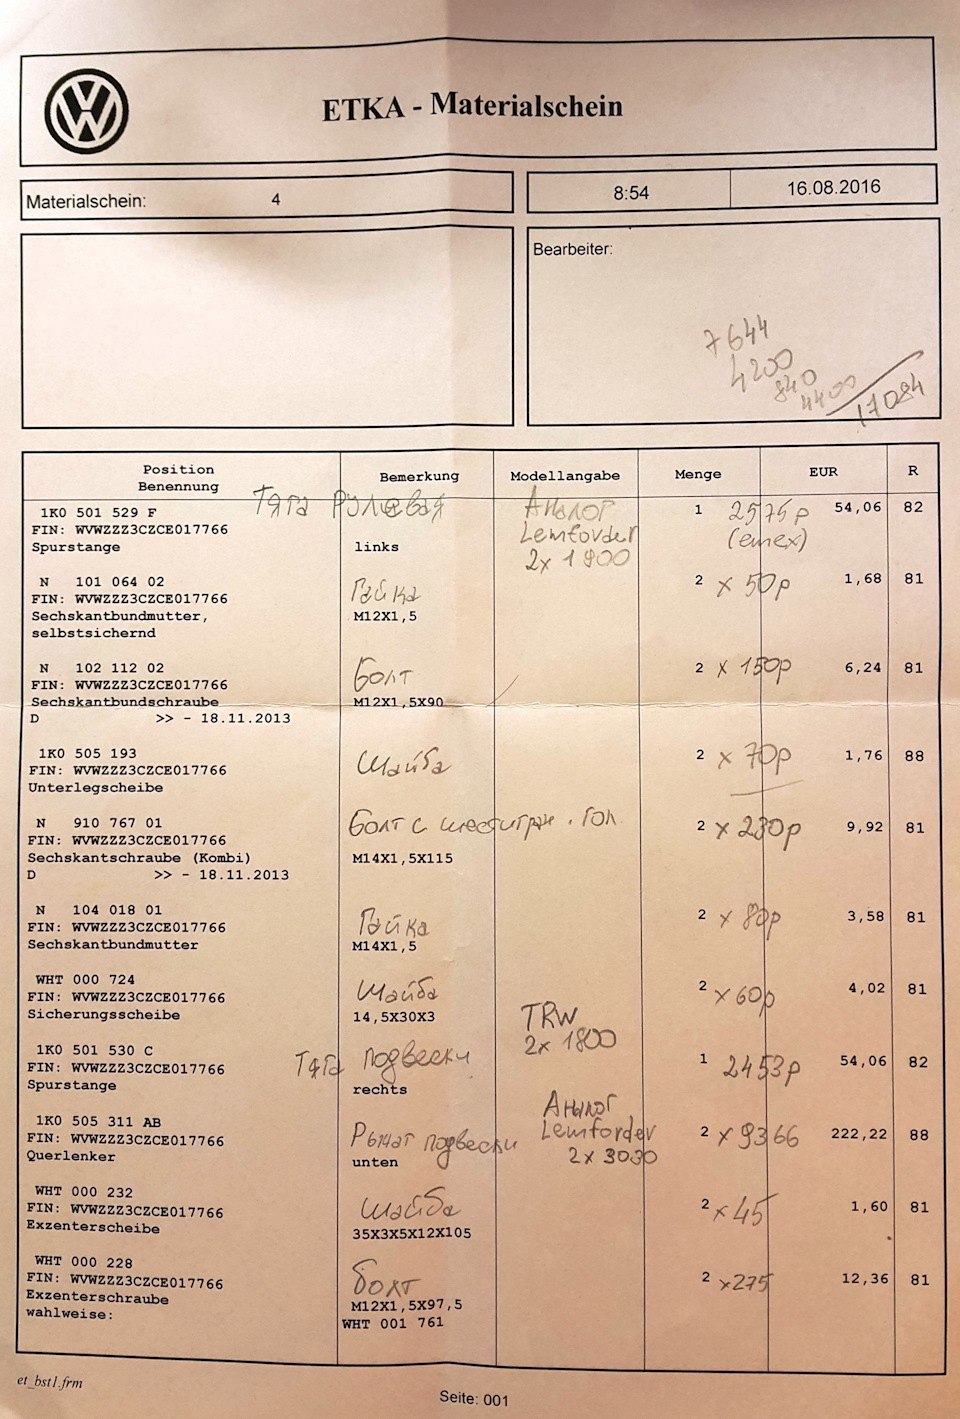 ETKA - Materialschein
Materialschein: 4
8:54 16.08.2016
Bearbeiter:
7644
4200
840
4400
17084
Position Benennung Bemerkung Modellangabe Menge EUR R
Тяга рулевая
1K0 501 529 F 1 2575р 54,06 82
FIN: WVWZZZ3CZCE017766 (emex)
Spurstange links
Аналог
Lemforder
2x 1900
N 101 064 02 2 x 50р 1,68 81
FIN: WVWZZZ3CZCE017766 Гайка
Sechskantbundmutter, M12X1,5
selbstsichernd
N 102 112 02 2 x 150р 6,24 81
FIN: WVWZZZ3CZCE017766 Болт
Sechskantbundschraube M12X1,5X90
D >> - 18.11.2013
1K0 505 193 2 x 70р 1,76 88
FIN: WVWZZZ3CZCE017766 Шайба
Unterlegscheibe
N 910 767 01 2 x 230р 9,92 81
FIN: WVWZZZ3CZCE017766 Болт с шестигран. гол.
Sechskantschraube (Kombi) M14X1,5X115
D >> - 18.11.2013
N 104 018 01 2 x 80р 3,58 81
FIN: WVWZZZ3CZCE017766 Гайка
Sechskantbundmutter M14X1,5
WHT 000 724 2 x 60р 4,02 81
FIN: WVWZZZ3CZCE017766 Шайба
Sicherungsscheibe 14,5X30X3
TRW
2x 1800
1K0 501 530 C 1 2453р 54,06 82
FIN: WVWZZZ3CZCE017766 Тяга подвески
Spurstange rechts
Аналог
Lemforder
2x 3030
1K0 505 311 AB 2 x 9366 222,22 88
FIN: WVWZZZ3CZCE017766 Рычаг подвески
Querlenker unten
WHT 000 232 2 x 45 1,60 81
FIN: WVWZZZ3CZCE017766 Шайба
Exzenterscheibe 35X3X5X12X105
WHT 000 228 2 x 275 12,36 81
FIN: WVWZZZ3CZCE017766 болт
Exzenterschraube M12X1,5X97,5
wahlweise: WHT 001 761
et_bst1.frm
Seite: 001